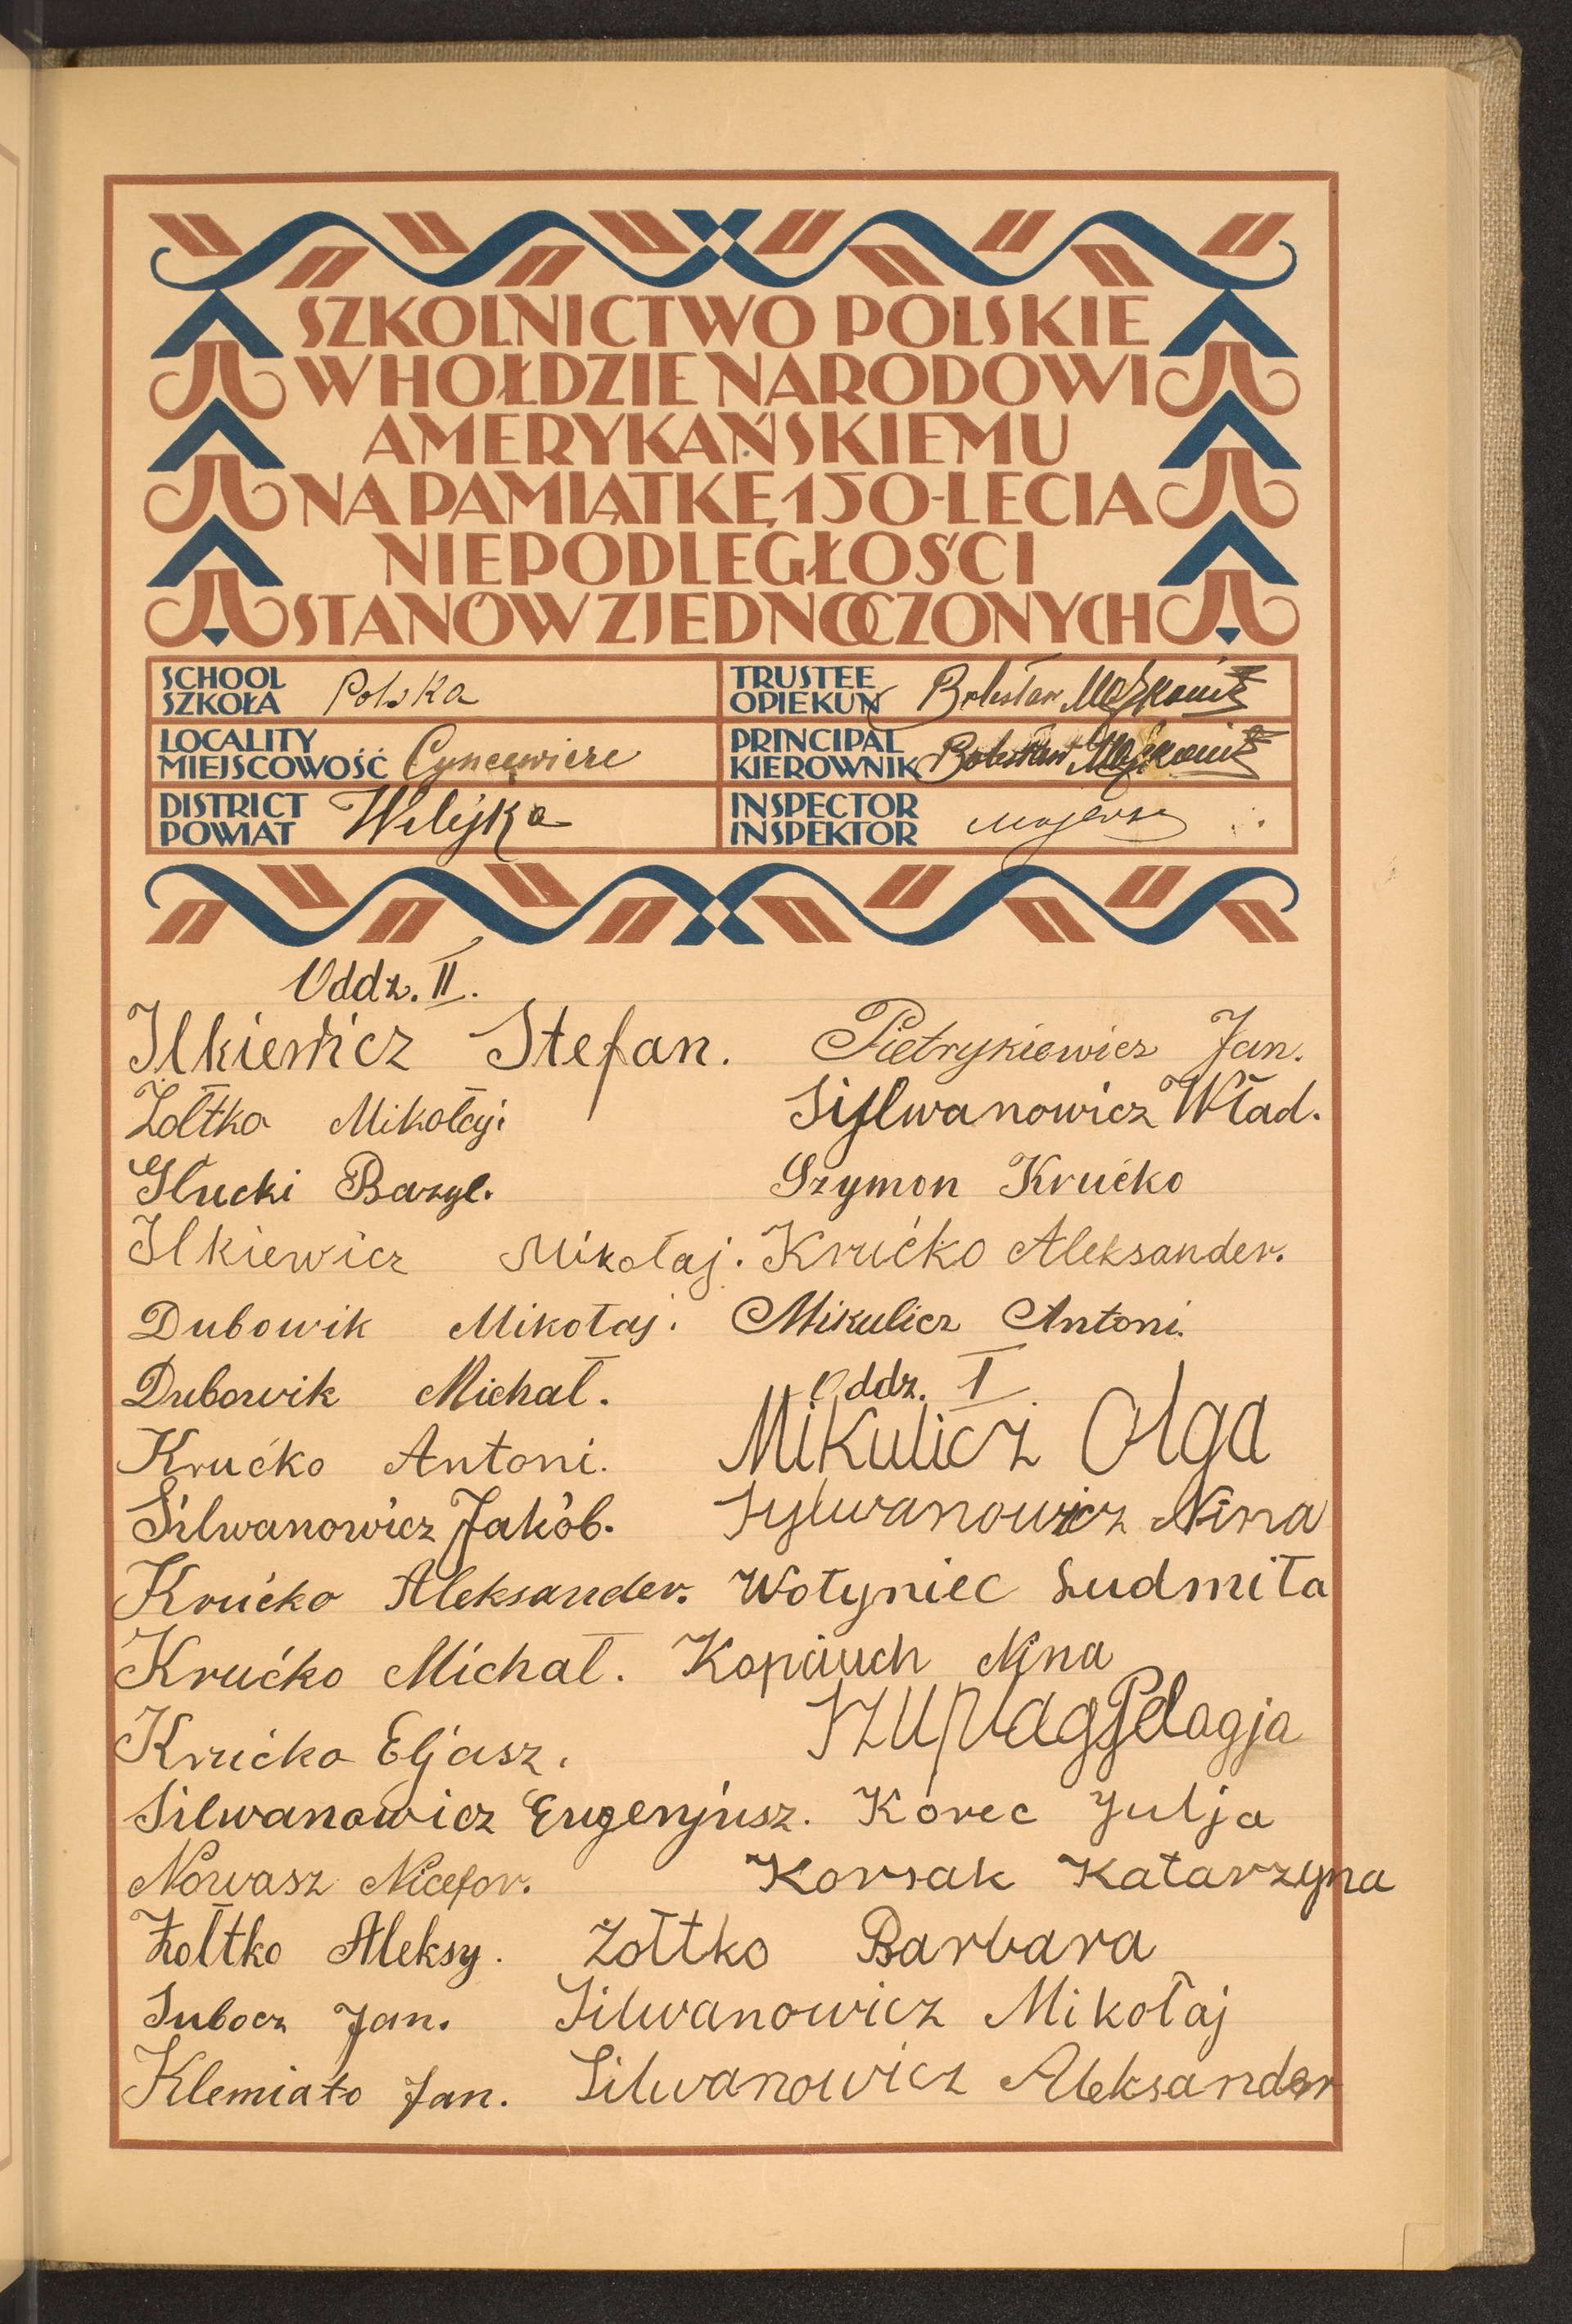 SZKOLNICTWO POLSKIE
W HOŁDZIE NARODOWI
AMERYKAŃSKIEMU
NA PAMIĄTKĘ 150-LECIA
NIEPODLEGŁOŚCI
STANÓW ZJEDNOCZONYCH
SCHOOL
SZKOŁA Polska
TRUSTEE
OPIEKUN Bolesław
LOCALITY
MIEJSCOWOŚĆ Cyncewicze
PRINCIPAL
KIEROWNIK Bolesław
DISTRICT
POWIAT Wilejka
INSPECTOR
INSPEKTOR
Oddz. II.
Ilkiewicz Stefan.
Żołtko Mikołaj.
Głucki Bazyl.
Ilkiewicz Mikołaj.
Dubowik Mikołaj.
Dubowik Michał.
Krućko Antoni.
Silwanowicz Jakób.
Krućko Aleksander.
Krućko Michał.
Krućko Eljasz.
Silwanowicz Eugenjusz.
Nowasz Nicefor.
Żołtko Aleksy.
Subocz Jan.
Klemiato Jan.
Pietrykiewicz Jan.
Sylwanowicz Wład.
Szymon Krućko
Krućko Aleksander.
Mikulicz Antoni.
Oddz. I
Mikulicz Olga
Sylwanowicz Nina
Wołyniec Ludmiła
Kopciuch Nina
Pelagja
Korec Julja
Korsak Katarzyna
Żołtko Barbara
Silwanowicz Mikołaj
Silwanowicz Aleksander